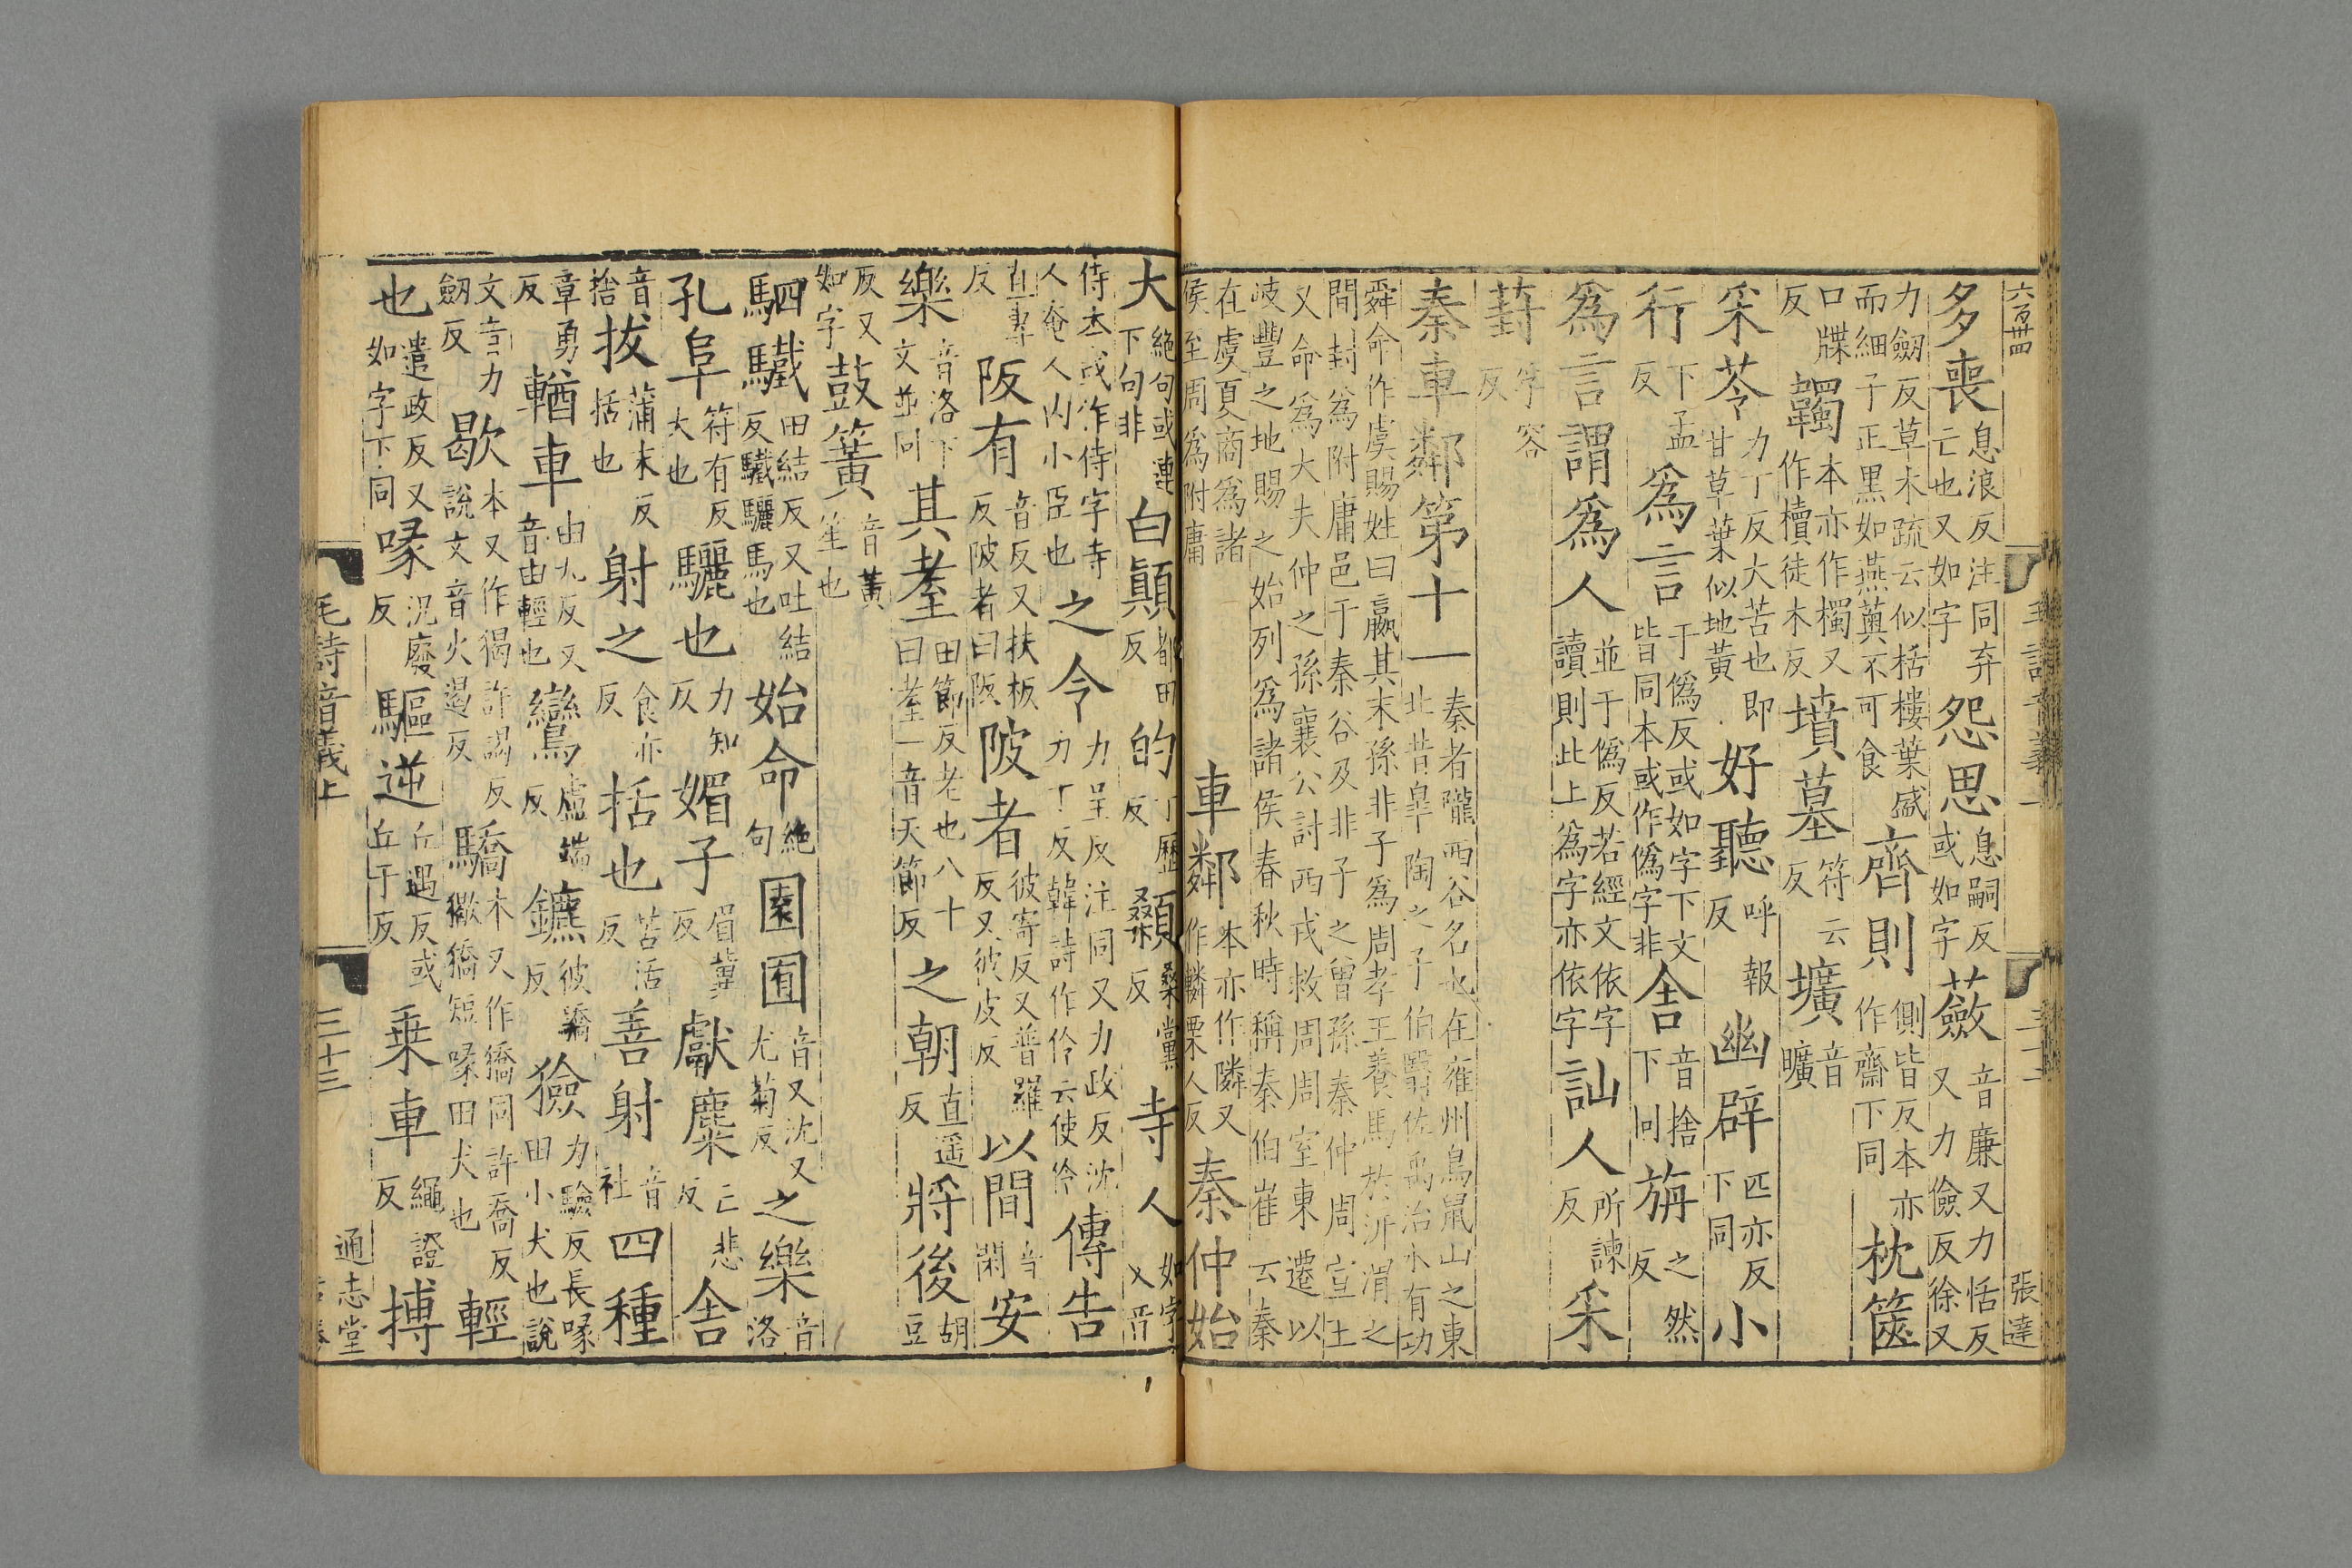 六百卌四 張達
多喪息浪反注同弃亡也又如字怨思息嗣反或如字蘞音廉又力恬反又力儉反徐又
力劒反草木疏云似栝樓葉盛而細子正黑如燕薁不可食齊則側皆反本亦作齋下同枕篋
口牒反韣本亦作襡又作櫝徒木反墳墓符云反壙音曠
采苓力丁反大苦也即甘草葉似地黃好聽呼報反幽辟匹亦反下同小
行下孟反為言于偽反或如字下文皆同本或作偽字非舍音捨下同旃之然反
為言謂為人並于偽反若經文依字讀則此上為字亦依字訕人所諫反采
葑孚容反
秦車鄰第十一秦者隴西谷名也在雍州鳥鼠山之東北昔皐陶之子伯翳佐禹治水有功
舜命作虞賜姓曰嬴其末孫非子為周孝王養馬於汧渭之間封為附庸邑于秦谷及非子之曾孫秦仲周宣王
又命為大夫仲之孫襄公討西戎救周周室東遷以岐豐之地賜之始列為諸侯春秋時稱秦伯崔云秦
在虞夏商為諸侯至周為附庸車鄰本亦作隣又作轔栗人反秦仲始
大絕句或連下句非白顛都田反的丁歷反顙桑黨反寺人如字又音
侍本或作侍字寺人奄人內小臣也之令力呈反注同又力政反沈力丁反韓詩作伶云使伶傳告
直專反阪有音反又扶板反陂者曰阪陂者彼寄反又普羅反又彼皮反以間音閑安
樂音洛下文並同其耋田節反老也八十曰耋一音天節反之朝直遥反將後胡豆
反又如字鼓簧音黃笙也
駟驖田結反又吐結反驖驪馬也始命絕句園囿音又沈又尤菊反之樂音洛
孔阜符有反大也驪也力知反媚子眉冀反獻麋亡悲反舍
音捨拔蒲末反括也射之食亦反括也苦活反善射音社四種
章勇反輶車由九反又音由輕也鸞盧端反鑣彼驕反獫力驗反長喙田小犬也說
文音力劒反歇本又作猲許謁反說文音火遏反驕本又作獢同許喬反獥獢短喙田犬也輕
也遣政反又如字下同喙況廢反驅逆丘遇反或丘于反乗車繩證反搏
毛詩音義上 三十三 通志堂